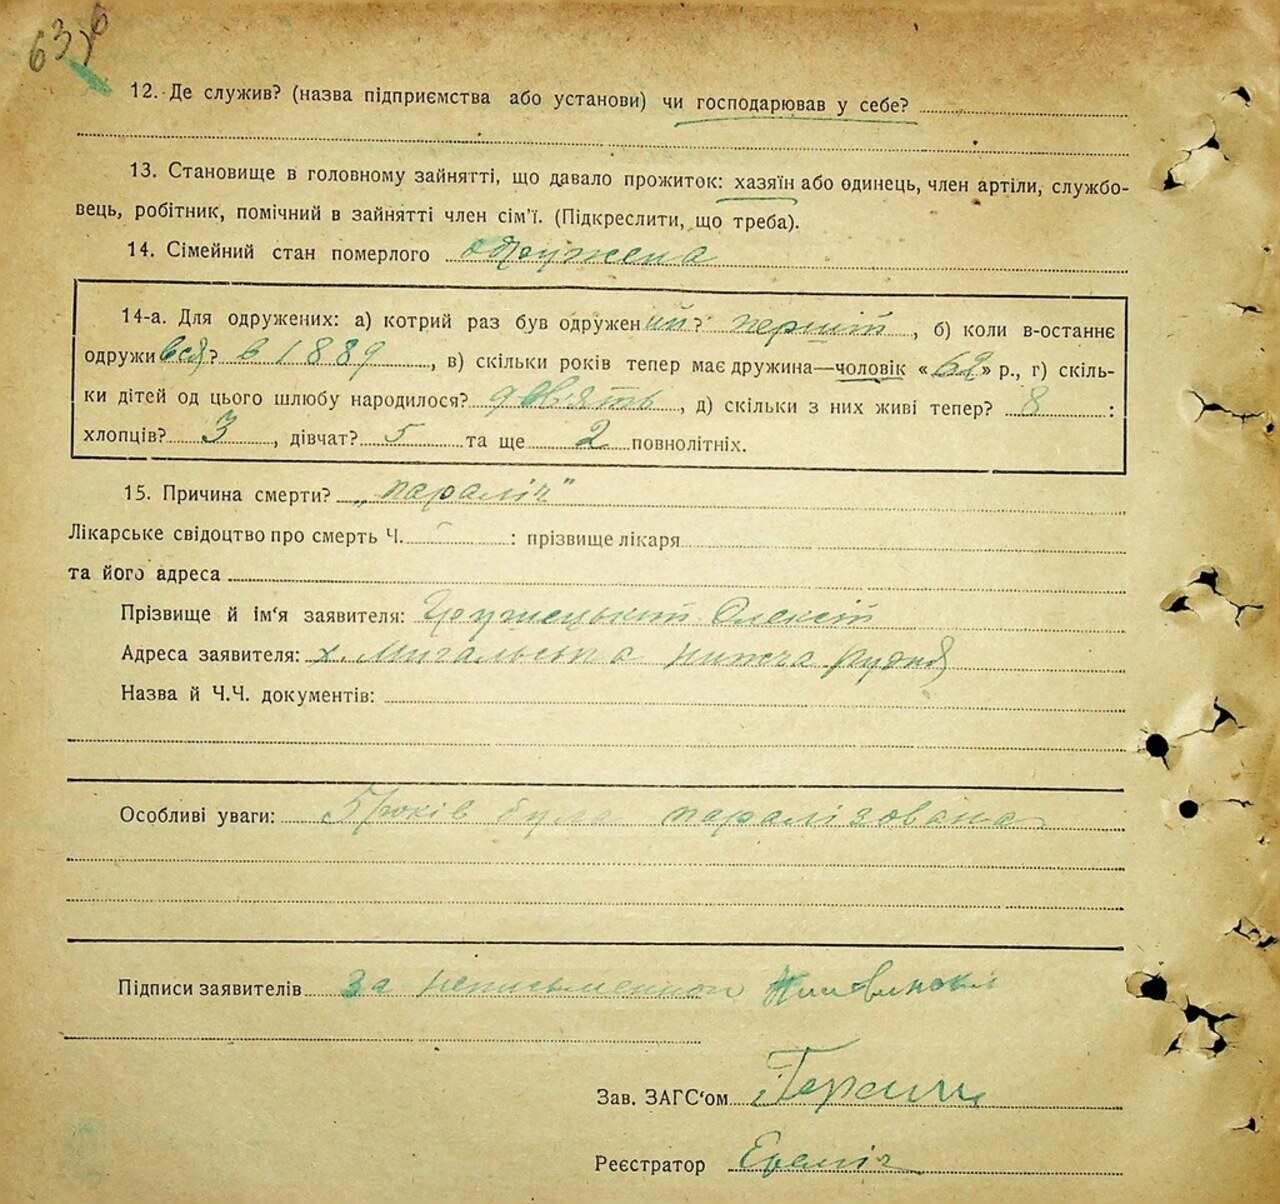 63
12. Де служив? (назва підприємства або установи) чи господарював у себе?
13. Становище в головному зайнятті, що давало прожиток: хазяїн або одинець, член артіли, службо-
вець, робітник, помічний в зайнятті член сім'ї. (Підкреслити, що треба).
14. Сімейний стан померлого одружена
14-а. Для одружених: а) котрий раз був одружений? перший, б) коли в-останнє
одружився? в 1889, в) скільки років тепер має дружина—чоловік «62» р., г) скіль-
ки дітей од цього шлюбу народилося? девять, д) скільки з них живі тепер? 8 :
хлопців? 3, дівчат? 5 та ще 2 повнолітніх.
15. Причина смерти? „параліч"
Лікарське свідоцтво про смерть Ч. - : прізвище лікаря
та його адреса
Прізвище й ім'я заявителя: Олексій
Адреса заявителя: х. нижча рудня
Назва й Ч.Ч. документів:
Особливі уваги: 5 років була паралізована
Підписи заявителів За неписьменного
Зав. ЗАГС'ом
Реєстратор